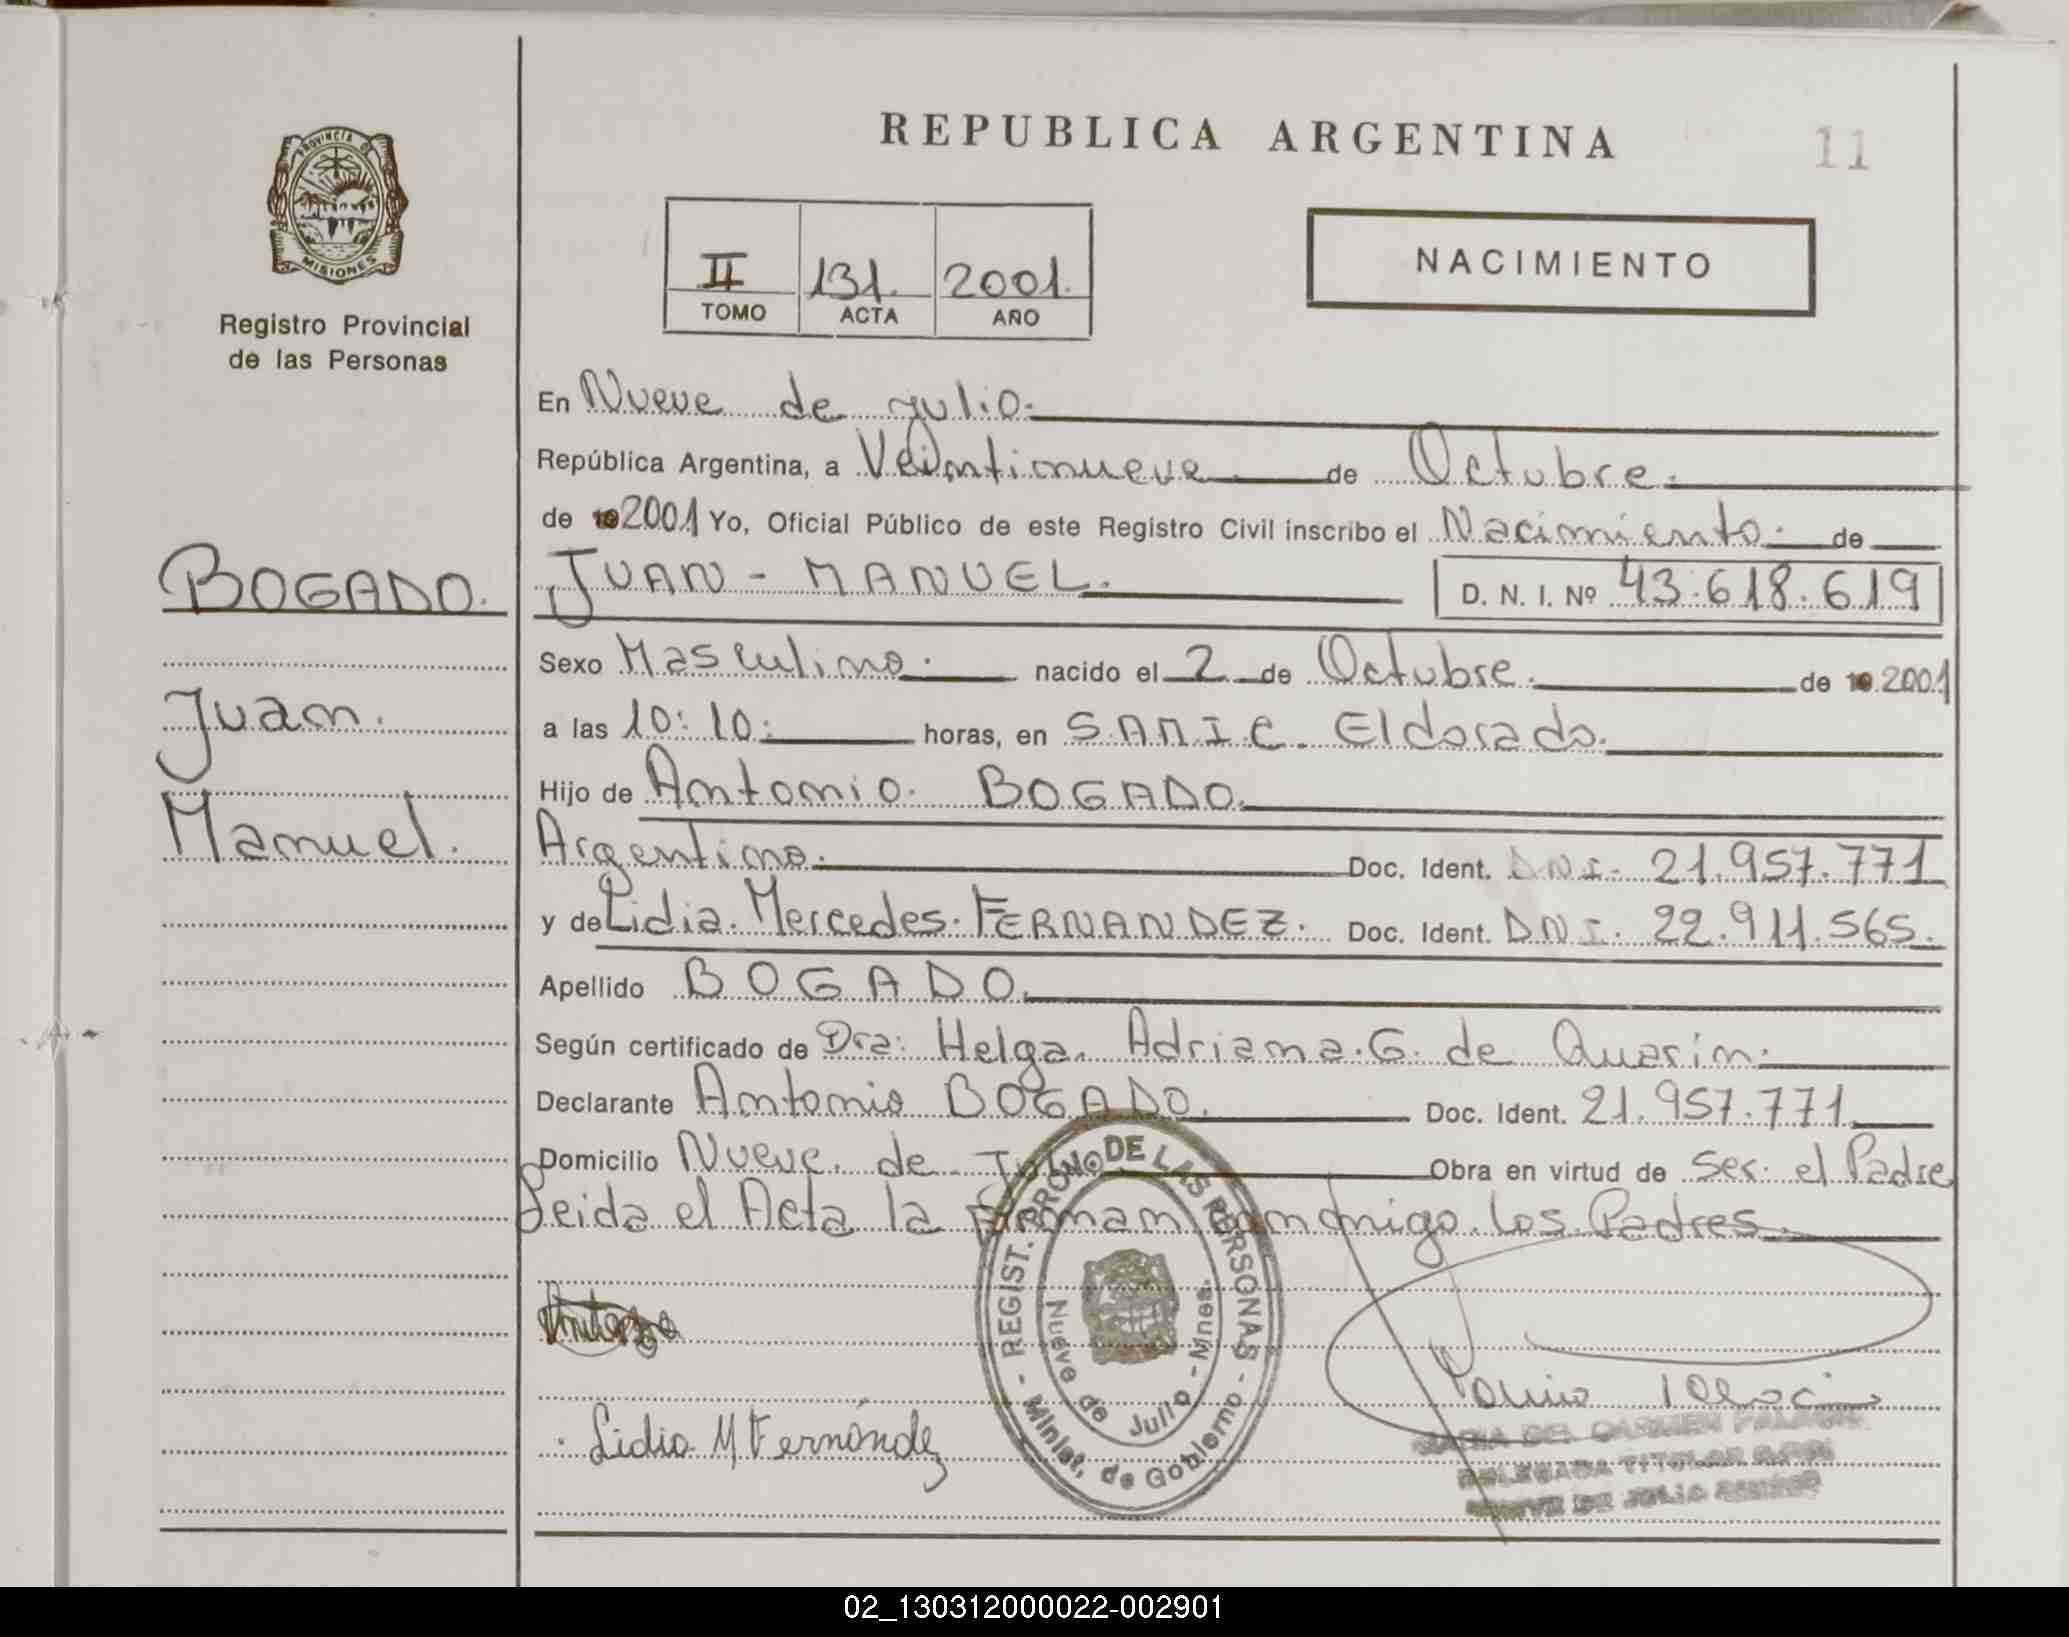 REPUBLICA ARGENTINA
11
PROVINCIA DE
MISIONES
Registro Provincial
de las Personas
II 131. 2001.
TOMO ACTA AÑO
NACIMIENTO
En Nueve de julio.
República Argentina, a Veintinueve de Octubre.
de 19 2001 Yo, Oficial Público de este Registro Civil inscribo el Nacimiento. de
BOGADO.
JUAN - MANUEL. D. N. I. Nº 43.618.619
Sexo Masculino. nacido el 2 de Octubre. de 19 2001
Juan.
a las 10:10. horas, en S.A.M.I.C. Eldorado.
Hijo de Antonio. BOGADO.
Manuel.
Argentino. Doc. Ident. DNI. 21.957.771
y de Lidia. Mercedes. FERNANDEZ. Doc. Ident. DNI. 22.911.565.
Apellido BOGADO.
Según certificado de Dra: Helga. Adriana. G. de Querin.
Declarante Antonio BOGADO. Doc. Ident. 21.957.771.
Domicilio Nueve de Julio Obra en virtud de Ser el Padre
Leida el Acta la firman conmigo los Padres.
REGIST. PROV. DE LAS PERSONAS
Nueve de Julio - Mnes.
- Minist. de Gobierno -
Lidia M. Fernández
MARIA DEL CARMEN
DELEGADA TITULAR
NUEVE DE JULIO
02_130312000022-002901